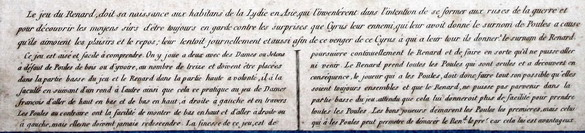 Le jeu du Renard, doit sa naissance aux habitans de la Lydie en Asie, qui l'inventèrent dans l'intention de se former aux ruses de la guerre et
pour découvrir les moyens sûrs d'être toujours en garde contre les surprises que Cyrus leur ennemi, qui leur avoit donné le surnom de Poules a cause
qu'ils aimoient les plaisirs et le repos; leur tendoit journellement et aussi afin de se vanger de ce Cyrus à qui a leur tour ils donnerent le surnom de Renard.
Ce jeu est aisé et facile à comprendre. On y joue a deux avec des Dames ou Jetons
à défaut de Poules de bois ou d'yvoire, au nombre de treize et doivent être placées
dans la partie basse du jeu et le Renard dans la partie haute a volonté, il à la
faculté en suivant d'un rond à l'autre ainsi que cela se pratique au jeu de Dames
françois d'aller de haut en bas et de bas en haut, a droite a gauche et en travers
Les Poules au contraire ont la faculté de monter de bas en haut et d'aller a droite ou
à gauche, mais elles ne doivent jamais redescendre. La finesse de ce jeu, est de
poursuivre continuellement le Renard et de faire en sorte qu'il ne puisse aller
ni venir. Le Renard prend toutes les Poules qui sont seules et a découvert en
conséquence, le joueur qui a les Poules, doit donc faire tout son possible qu'elles
soient toujours ensembles et que le Renard, ne puisse pas parvenir dans la
partie basse du jeu attendu que cela lui donneroit plus de facilité pour prendre
toutes les Poules. Les bons joueurs donneront les Poules les premieres, mais celui
qui a les Poules peut permettre de demarer le Ren. le pr. car cela lui est avantageux